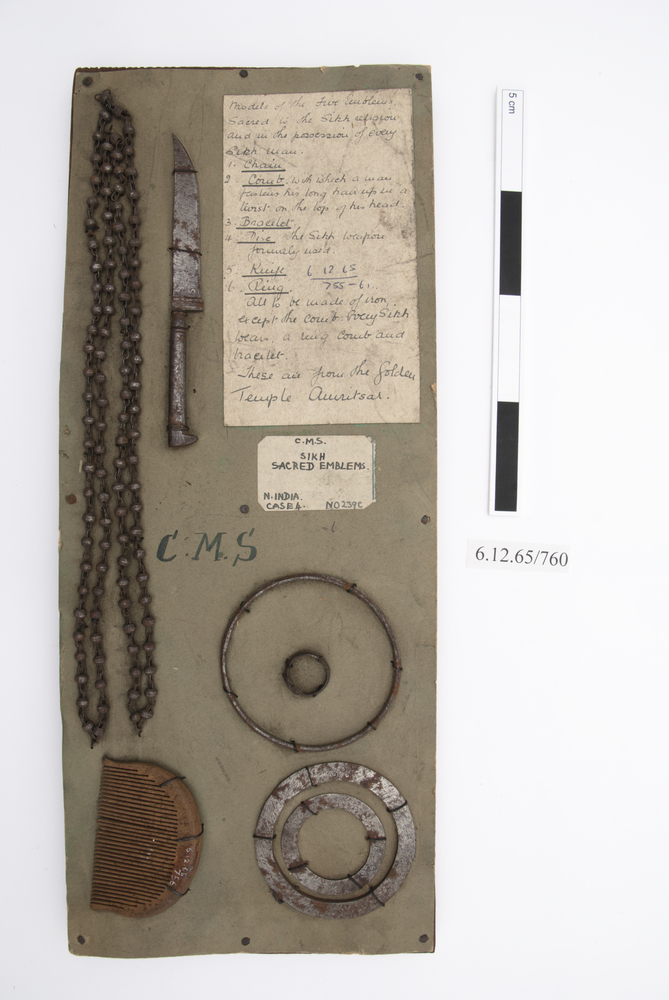 5 cm
Models of the Five Emblems
Sacred to the Sikh religion
and in the possession of every
Sikh man.
1. Chain
2 Comb. with which a man
fastens his long hair up in a
on the top of his head.
3. Bracelet.
4. Disc the Sikh weapon
formerly used.
5. Knife 6 12.65
6. Ring. 755-61.
All to be made of iron
except the comb. Every Sikh
wears a ring comb and
bracelet.
These are from the Golden
Temple Amritsar.
C.M.S.
SIKH
SACRED EMBLEMS.
N. INDIA.
CASE 4. NO 239C
C.M.S
6.12.65/760